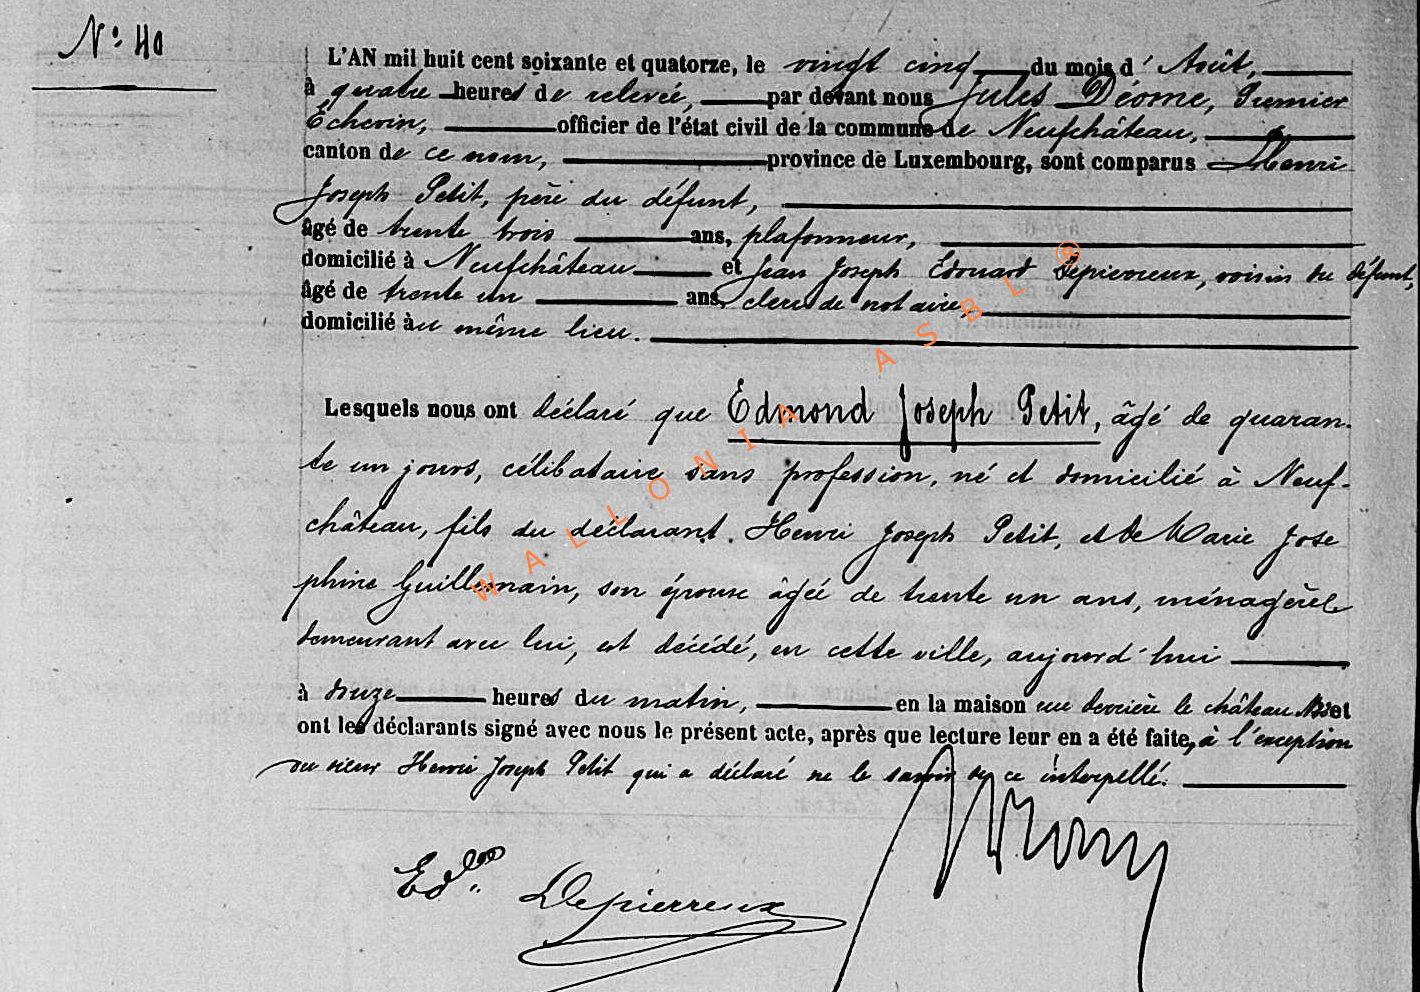 N° 40
L'AN mil huit cent soixante et quatorze, le vingt cinq du mois d'Août,
à quatre heures de relevée, par devant nous Jules Déome, Premier
Echevin, officier de l'état civil de la commune de Neufchâteau,
canton de ce nom, province de Luxembourg, sont comparus Henri
Joseph Petit, père du défunt,
âgé de trente trois ans, plafonneur,
domicilié à Neufchâteau et Jean Joseph Edouard Depierreux, voisin du défunt,
âgé de trente un ans, clerc de notaire,
domicilié au même lieu.
Lesquels nous ont déclaré que Edmond Joseph Petit, âgé de quaran-
te un jours, célibataire sans profession, né et domicilié à Neuf-
château, fils du déclarant Henri Joseph Petit, et de Marie José
phine Guillemain, son épouse âgée de trente un ans, ménagère
demeurant avec lui, est décédé, en cette ville, aujourd'hui
à onze heures du matin, en la maison rue derrière le château et
ont les déclarants signé avec nous le présent acte, après que lecture leur en a été faite, à l'exception
du sieur Henri Joseph Petit qui a déclaré ne le savoir de ce interpellé.
Ed. Depierreux
WALLONIA ASBL ®